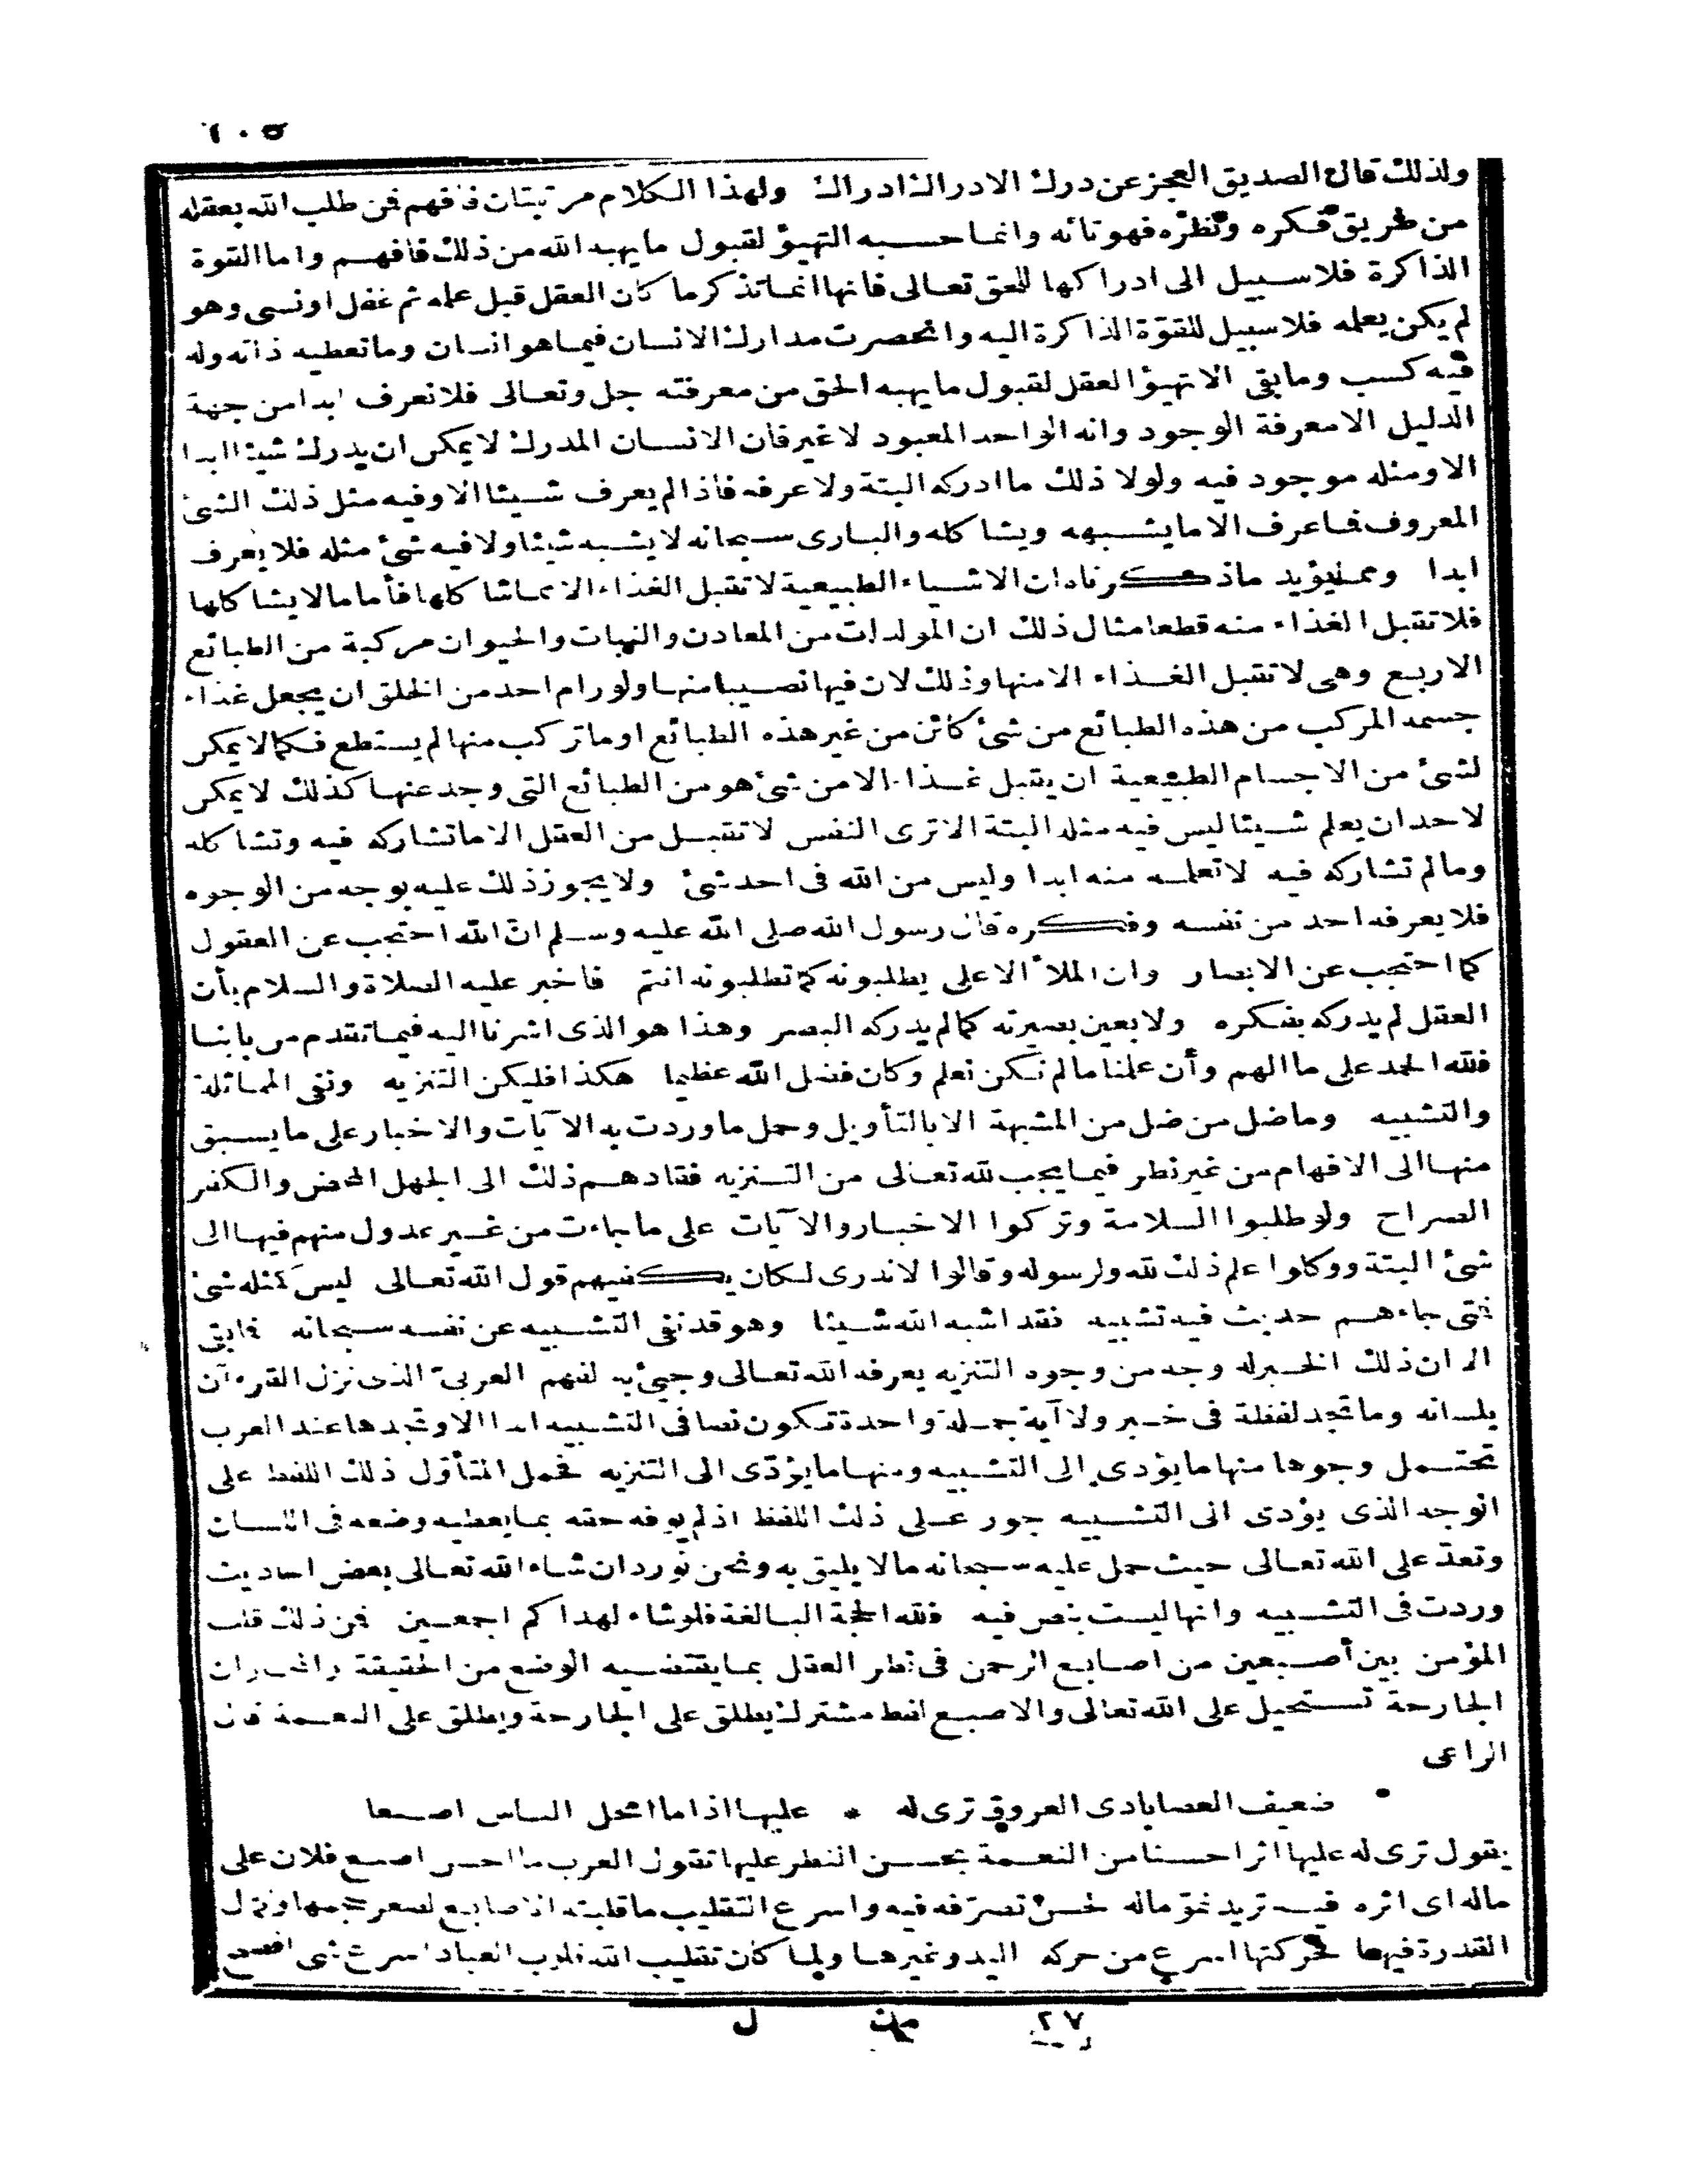 ١٠٥
ولذلك قال الصديق العجز عن درك الادراك ادراك ولهذا الكلام مرتبتان فافهم فمن طلب الله بعقله
من طريق فكره ونظره فهو تائه وانما حسبه التهيؤ لقبول ما يهبه الله من ذلك فافهم واما القوة
الذاكرة فلا سبيل الى ادراكها للحق تعالى فانها انما تذكر ما كان العقل قبل علمه ثم غفل او نسى وهو
لم يكن يعلمه فلا سبيل للقوّة الذاكرة اليه وانحصرت مدارك الانسان فيما هو انسان وما تعطيه ذاته وله
فيه كسب وما بقى الا تهيؤ العقل لقبول ما يهبه الحق من معرفته جل وتعالى فلا تعرف ابدا من جهة
الدليل الا معرفة الوجود وانه الواحد المعبود لا غير فان الانسان المدرك لا يمكن ان يدرك شيئا ابدا
الا ومثله موجود فيه ولولا ذلك ما ادركه البتة ولا عرفه فاذا لم يعرف شيئا الا وفيه مثل ذلك الشئ
المعروف فما عرف الا ما يشبهه ويشاكله والبارى سبحانه لا يشبه شيئا ولا فيه شئ مثله فلا يعرف
ابدا ومما يؤيد ما ذكرناه ان الاشياء الطبيعية لا تقبل الغذاء الا مما شاكلها فأما ما لا يشاكلها
فلا تقبل الغذاء منه قطعا مثال ذلك ان المولدات من المعادن والنبات والحيوان مركبة من الطبائع
الاربع وهى لا تقبل الغذاء الا منها وذلك لان فيها نصيبا منها ولو رام احد من الخلق ان يجعل غذاء
جسمه المركب من هذه الطبائع من شئ كائن من غير هذه الطبائع او ما تركب منها لم يستطع فكما لا يمكن
لشئ من الاجسام الطبيعية ان يقبل غذاء الا من شئ هو من الطبائع التى وجد عنها كذلك لا يمكن
لاحد ان يعلم شيئا ليس فيه مثله البتة الا ترى النفس لا تقبل من العقل الا ما تشاركه فيه وتشاكله
وما لم تشاركه فيه لا تعلمه منه ابدا وليس من الله فى احد شئ ولا يجوز ذلك عليه بوجه من الوجوه
فلا يعرفه احد من نفسه وفكره قال رسول الله صلى الله عليه وسلم انّ الله احتجب عن العقول
كما احتجب عن الابصار وان الملأ الاعلى يطلبونه كما تطلبونه انتم فاخبر عليه الصلاة والسلام بأن
العقل لم يدركه بفكره ولا بعين بصيرته كما لم يدركه البصر وهذا هو الذى اشرنا اليه فيما تقدم من بابنا
فلله الحمد على ما الهم وأن علمنا ما لم نكن نعلم وكان فضل الله عظيما هكذا فليكن التنزيه ونفى المماثلة
والتشبيه وما ضل من ضل من المشبهة الا بالتأويل وحمل ما وردت به الآيات والاخبار على ما يسبق
منها الى الافهام من غير نظر فيما يجب لله تعالى من التنزيه فقادهم ذلك الى الجهل المحض والكفر
الصراح ولو طلبوا السلامة وتركوا الاخبار والآيات على ما جاءت من غير عدول منهم فيها الى
شئ البتة ووكلوا علم ذلك لله ولرسوله وقالوا لا ندرى لكان يكفيهم قول الله تعالى ليس كمثله شئ
فمتى جاءهم حديث فيه تشبيه فقد اشبه الله شيئا وهو قد نفى التشبيه عن نفسه سبحانه فما بقى
الا ان ذلك الخبر له وجه من وجوه التنزيه يعرفه الله تعالى وجئ به لفهم العربىّ الذى نزل القرءآن
بلسانه وما تجد لفظة فى خبر ولا آية جملة واحدة تكون نصا فى التشبيه ابدا الا وتجدها عند العرب
تحتمل وجوها منها ما يؤدى الى التشبيه ومنها ما يؤدّى الى التنزيه فحمل المتأوّل ذلك اللفظ على
الوجه الذى يؤدى الى التشبيه جور على ذلك اللفظ اذ لم يوفه حقه بما يعطيه وضعه فى اللسان
وتعدّ على الله تعالى حيث حمل عليه سبحانه ما لا يليق به ونحن نورد ان شاء الله تعالى بعض احاديث
وردت فى التشبيه وانها ليست بنص فيه فلله الحجة البالغة فلو شاء لهداكم اجمعين فمن ذلك قلب
المؤمن بين أصبعين من اصابع الرحمن فى نظر العقل بما يقتضيه الوضع من الحقيقة والمجاز ان
الجارحة تستحيل على الله تعالى والاصبع لفظ مشترك يطلق على الجارحة ويطلق على النعمة قال
الراعى
ضعيف العصا بادى العروق ترى له * عليها اذا ما امحل الناس اصبعا
يقول ترى له عليها اثرا حسنا من النعمة بحسن النظر عليها تقول العرب ما احسن اصبع فلان على
ماله اى اثره فيه تريد نموّ ماله لحسن تصرّفه فيه واسرع التقليب ما قلبته الاصابع لصغر حجمها وكمال
القدرة فيها فحركتها اسرع من حركة اليد وغيرها ولما كان تقليب الله قلوب العباد اسرع شى افصح
٢٧ مك ل